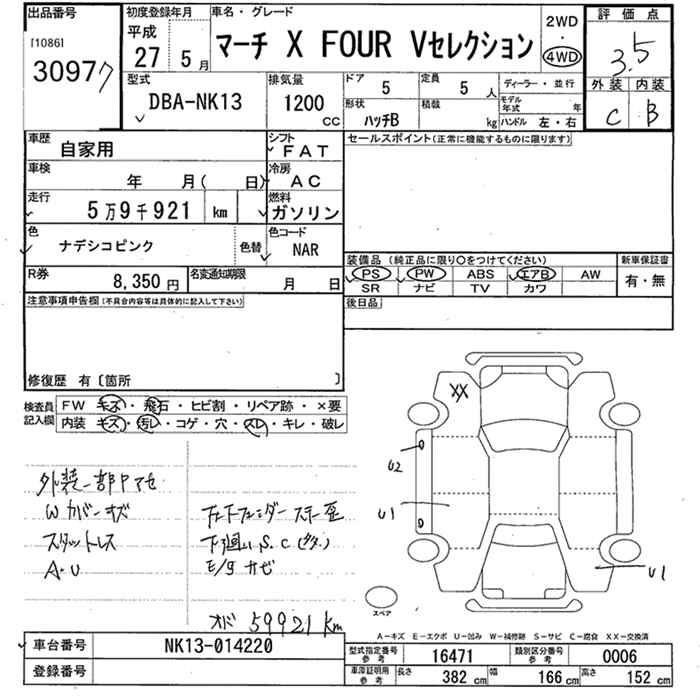 出品番号
[1086]
30977
初度登録年月
平成
27 5月
車名・グレード
マーチ X FOUR Vセレクション
2WD
・
4WD
評価点
3.5
外装 内装
C B
型式
DBA-NK13
排気量
1200
cc
ドア
5
定員
5人
形状
ハッチB
積載
kg
ディーラー・並行
モデル年式 年
ハンドル 左・右
車歴
自家用
シフト
FAT
車検
年 月( 日)
冷房
AC
走行
5万9千921 km
燃料
ガソリン
色
ナデシコピンク
色替
色コード
NAR
R券
8,350 円
名変通知期限
月 日
セールスポイント(正常に機能するものに限ります)
装備品(純正品に限り○をつけてください)
PS PW ABS エアB AW
SR ナビ TV カワ
新車保証書
有・無
後日品
注意事項申告欄(不具合内容等は具体的に記入して下さい)
修復歴 有〔箇所 〕
検査員記入欄
FW キズ・飛石・ヒビ割・リペア跡・×要
内装 キズ・汚レ・コゲ・穴・スレ・キレ・破レ
外装一部Pアセ
Wカバーキズ
スタットレス
A・U
下廻りS.C
オド59921km
XX
U2
U1
U1
スペア
A－キズ E－エクボ U－凹み W－補修跡 S－サビ C－腐食 XX－交換済
車台番号
NK13-014220
登録番号
型式指定番号参考
16471
類別区分番号参考
0006
車庫証明用参考
長さ 382 cm 幅 166 cm 高さ 152 cm